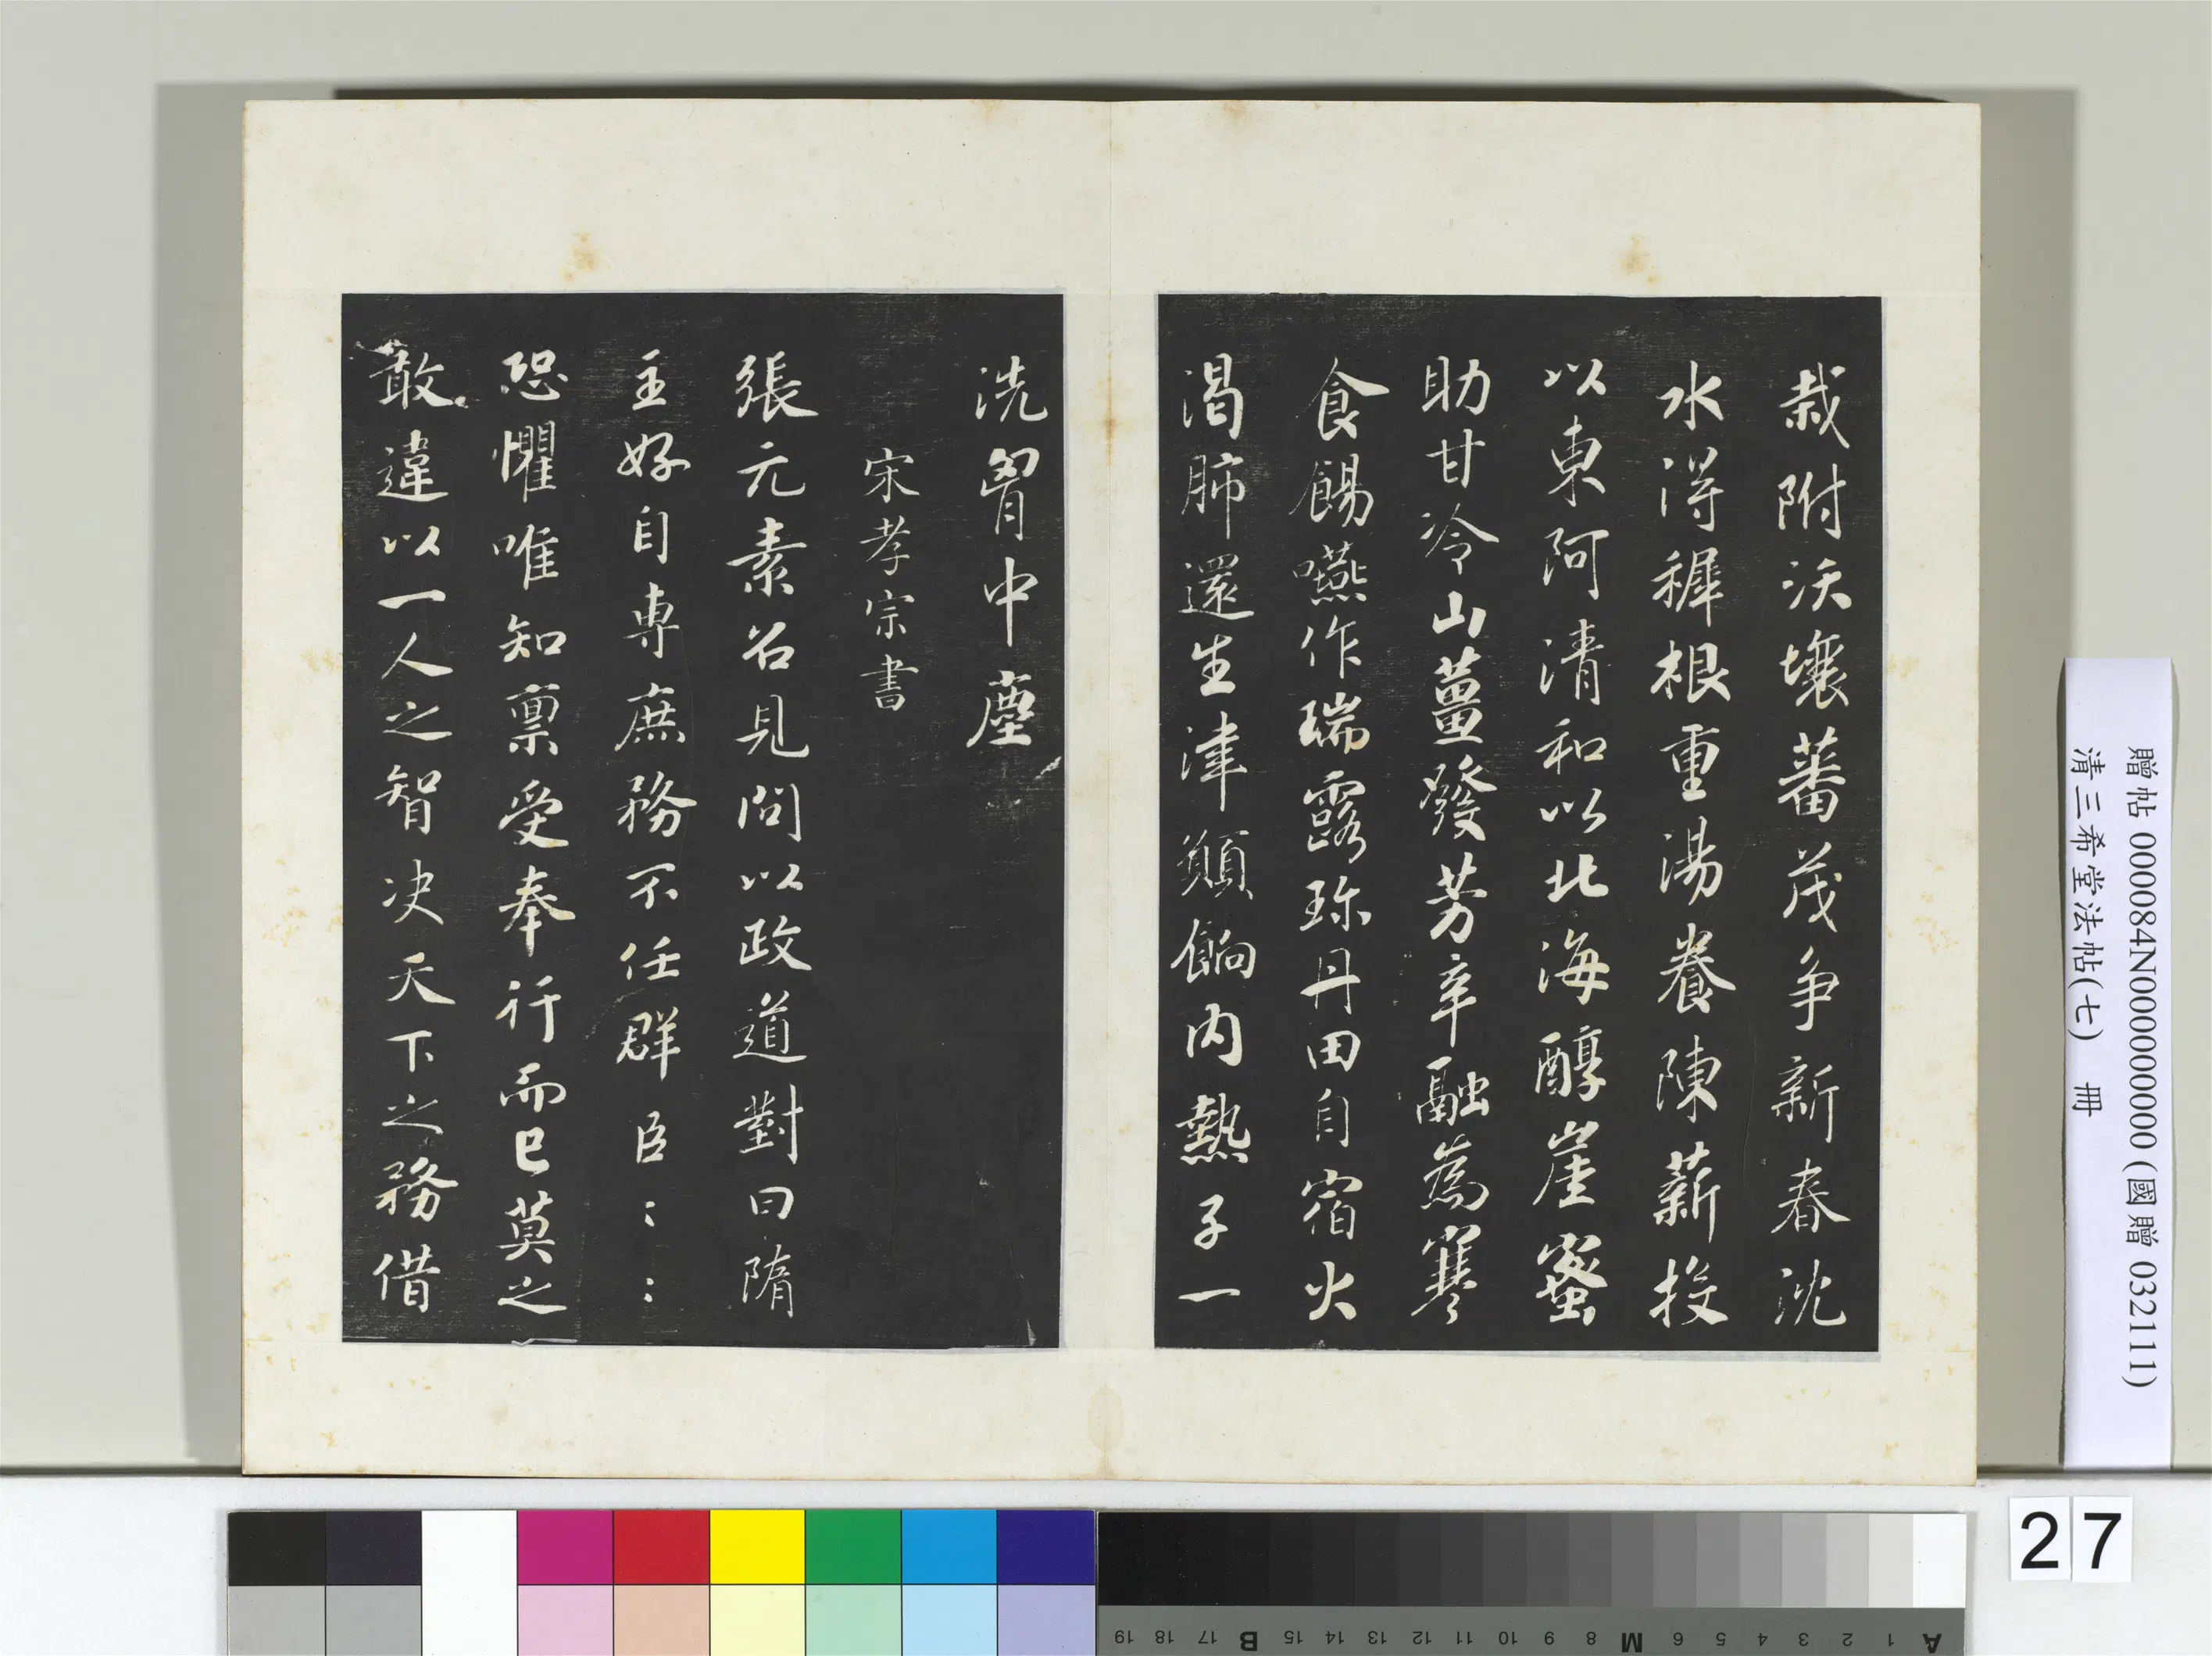 栽附沃壤蕃茂争新春沈
水得稺根重湯養陳薪投
以東阿清和以北海醇崖蜜
助甘冷山薑發芳辛融為寒
食餳嚥作瑞露珎丹田自宿火
渴肺還生津願餉内熱子一
洗胷中塵
宋孝宗書
張元素召見問以政道對曰隋
主好自専庶務不任群臣：：
恐懼唯知禀受奉行而已莫之
敢違以一人之智决天下之務借
贈帖 000084N000000000 (國贈 032111)
清三希堂法帖(七) 冊
27
A 1 2 3 4 5 6 M 8 9 10 11 12 13 14 15 B 17 18 19